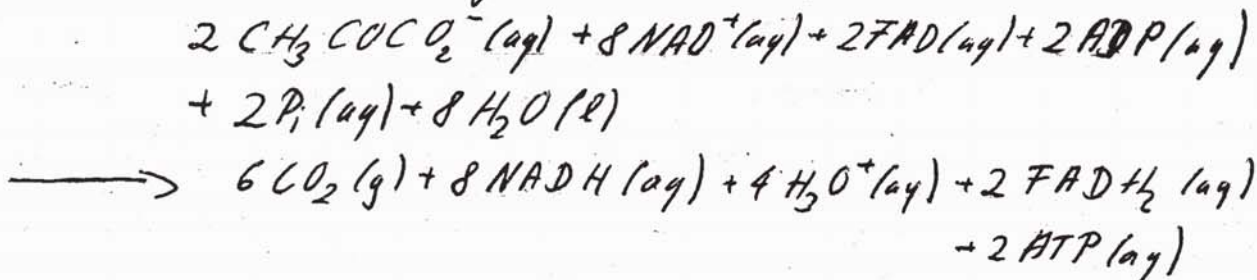 2 CH₃COCO₂⁻(aq) + 8NAD⁺(aq) + 2FAD(aq) + 2ADP(aq)
+ 2Pᵢ(aq) + 8H₂O(l)
⟶ 6CO₂(g) + 8NADH(aq) + 4H₃O⁺(aq) + 2FADH₂(aq)
+ 2ATP(aq)